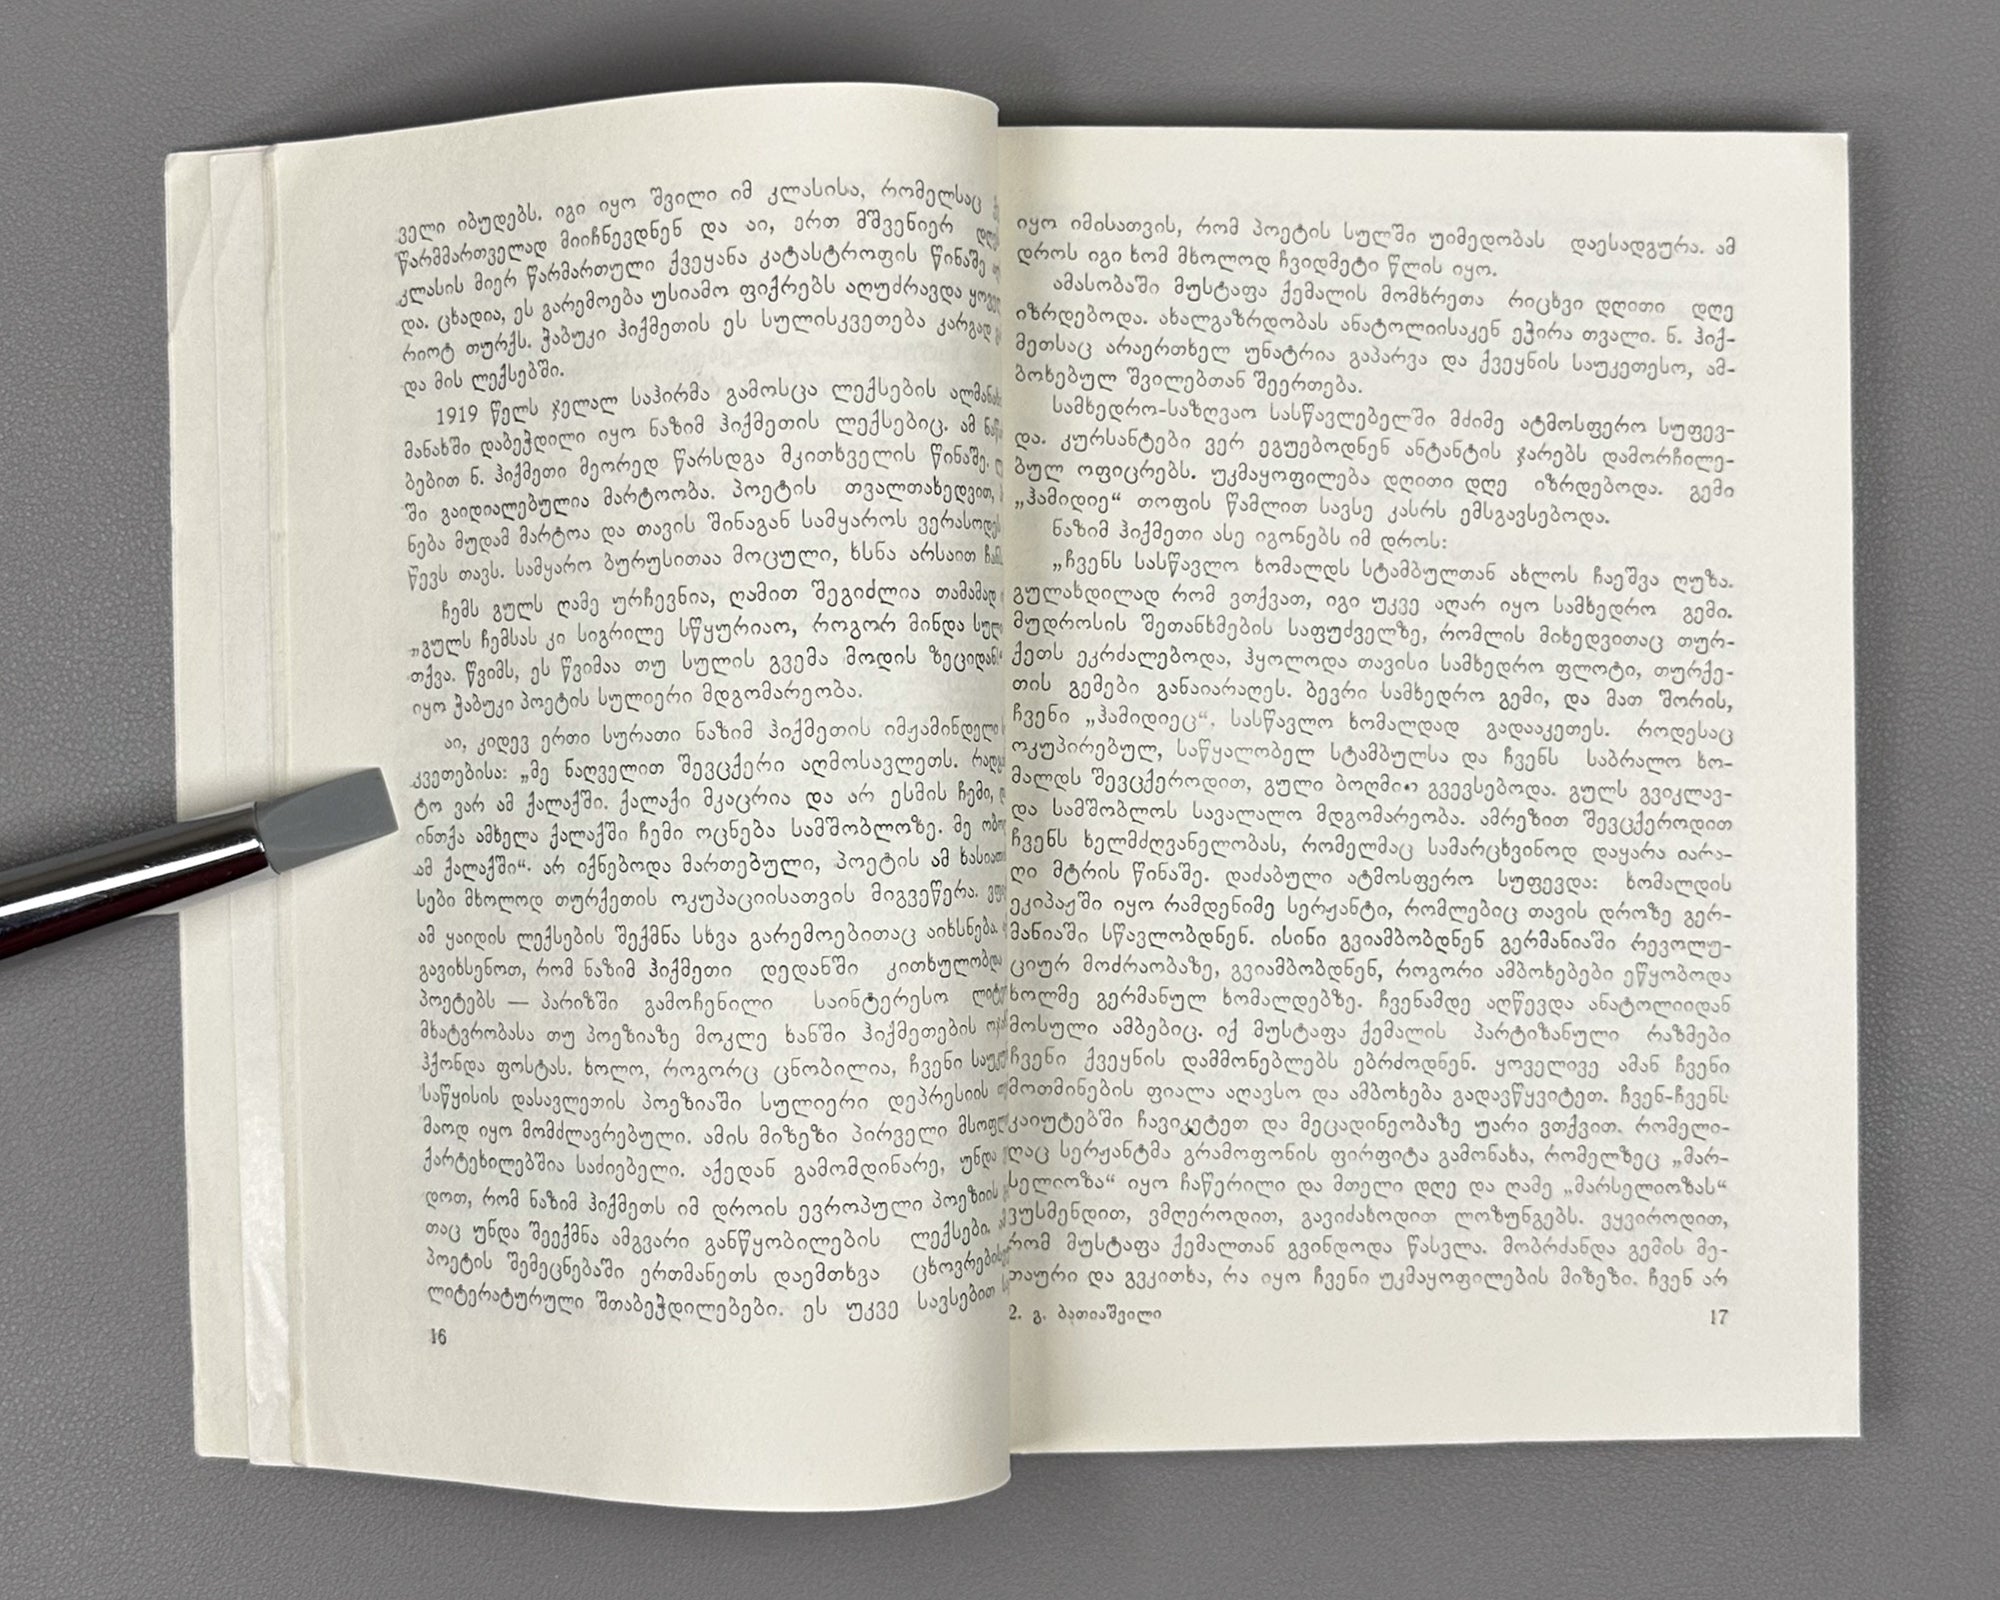 ველი იბუდებს. იგი იყო შვილი იმ კლასისა, რომელსაც
წარმმართველად მიიჩნევდნენ და აი, ერთ მშვენიერ
კლასის მიერ წარმართული ქვეყანა კატასტროფის წინაშე
და. ცხადია, ეს გარემოება უსიამო ფიქრებს აღუძრავდა
რიოტ თურქს. ჭაბუკი ჰიქმეთის ეს სულისკვეთება კარგად
და მის ლექსებში.
1919 წელს ჯელალ საჰირმა გამოსცა ლექსების
მანახში დაბეჭდილი იყო ნაზიმ ჰიქმეთის ლექსებიც. ამ
ბებით ნ. ჰიქმეთი მეორედ წარსდგა მკითხველის წინაშე.
ში გაიდიალებულია მარტოობა. პოეტის თვალთახედვით,
ნება მუდამ მარტოა და თავის შინაგან სამყაროს
წევს თავს. სამყარო ბურუსითაა მოცული, ხსნა არსაით
ჩემს გულს ღამე ურჩევნია, ღამით შეგიძლია თამამად
„გულს ჩემსას კი სიგრილე სწყურიაო, როგორ მინდა
თქვა. წვიმს, ეს წვიმაა თუ სულის გვემა მოდის ზეციდან.“
იყო ჭაბუკი პოეტის სულიერი მდგომარეობა.
აი, კიდევ ერთი სურათი ნაზიმ ჰიქმეთის
კვეთებისა: „მე ნაღველით შევცქერი აღმოსავლეთს.
ტო ვარ ამ ქალაქში. ქალაქი მკაცრია და არ ესმის ჩემი,
ინთქა ამხელა ქალაქში ჩემი ოცნება სამშობლოზე. მე
ამ ქალაქში“. არ იქნებოდა მართებული, პოეტის ამ
სები მხოლოდ თურქეთის ოკუპაციისათვის მიგვეწერა.
ამ ყაიდის ლექსების შექმნა სხვა გარემოებითაც აიხსნება.
გავიხსენოთ, რომ ნაზიმ ჰიქმეთი დედანში კითხულობდა
პოეტებს — პარიზში გამოჩენილი საინტერესო
მხატვრობასა თუ პოეზიაზე მოკლე ხანში ჰიქმეთების
ჰქონდა ფოსტას. ხოლო, როგორც ცნობილია, ჩვენი
საწყისის დასავლეთის პოეზიაში სულიერი დეპრესიის
მაოდ იყო მომძლავრებული. ამის მიზეზი პირველი
ქარტეხილებშია საძიებელი. აქედან გამომდინარე, უნდა
დოთ, რომ ნაზიმ ჰიქმეთს იმ დროის ევროპული პოეზიის
თაც უნდა შეექმნა ამგვარი განწყობილების ლექსები.
პოეტის შემეცნებაში ერთმანეთს დაემთხვა
ლიტერატურული შთაბეჭდილებები. ეს უკვე სავსებით
16
იყო იმისათვის, რომ პოეტის სულში უიმედობას დაესადგურა. ამ
დროს იგი ხომ მხოლოდ ჩვიდმეტი წლის იყო.
ამასობაში მუსტაფა ქემალის მომხრეთა რიცხვი დღითი დღე
იზრდებოდა. ახალგაზრდობას ანატოლიისაკენ ეჭირა თვალი. ნ. ჰიქ-
მეთსაც არაერთხელ უნატრია გაპარვა და ქვეყნის საუკეთესო, ამ-
ბოხებულ შვილებთან შეერთება.
სამხედრო-საზღვაო სასწავლებელში მძიმე ატმოსფერო სუფევ-
და. კურსანტები ვერ ეგუებოდნენ ანტანტის ჯარებს დამორჩილე-
ბულ ოფიცრებს. უკმაყოფილება დღითი დღე იზრდებოდა. გემი
„ჰამიდიე“ თოფის წამლით სავსე კასრს ემსგავსებოდა.
ნაზიმ ჰიქმეთი ასე იგონებს იმ დროს:
„ჩვენს სასწავლო ხომალდს სტამბულთან ახლოს ჩაეშვა ღუზა.
გულახდილად რომ ვთქვათ, იგი უკვე აღარ იყო სამხედრო გემი.
მუდროსის შეთანხმების საფუძველზე, რომლის მიხედვითაც თურ-
ქეთს ეკრძალებოდა, ჰყოლოდა თავისი სამხედრო ფლოტი, თურქე-
თის გემები განაიარაღეს. ბევრი სამხედრო გემი, და მათ შორის,
ჩვენი „ჰამიდიეც“. სასწავლო ხომალდად გადააკეთეს. როდესაც
ოკუპირებულ, საწყალობელ სტამბულსა და ჩვენს საბრალო ხო-
მალდს შევცქეროდით, გული ბოღმით გვევსებოდა. გულს გვიკლავ-
და სამშობლოს სავალალო მდგომარეობა. ამრეზით შევცქეროდით
ჩვენს ხელმძღვანელობას, რომელმაც სამარცხვინოდ დაყარა იარა-
ღი მტრის წინაშე. დაძაბული ატმოსფერო სუფევდა: ხომალდის
ეკიპაჟში იყო რამდენიმე სერჟანტი, რომლებიც თავის დროზე გერ-
მანიაში სწავლობდნენ. ისინი გვიამბობდნენ გერმანიაში რევოლუ-
ციურ მოძრაობაზე, გვიამბობდნენ, როგორი ამბოხებები ეწყობოდა
ხოლმე გერმანულ ხომალდებზე. ჩვენამდე აღწევდა ანატოლიიდან
მოსული ამბებიც. იქ მუსტაფა ქემალის პარტიზანული რაზმები
ჩვენი ქვეყნის დამმონებლებს ებრძოდნენ. ყოველივე ამან ჩვენი
მოთმინების ფიალა აღავსო და ამბოხება გადავწყვიტეთ. ჩვენ-ჩვენს
კაიუტებში ჩავიკეტეთ და მეცადინეობაზე უარი ვთქვით. რომელი-
ღაც სერჟანტმა გრამოფონის ფირფიტა გამონახა, რომელზეც „მარ-
სელიოზა“ იყო ჩაწერილი და მთელი დღე და ღამე „მარსელიოზას“
ვუსმენდით, ვმღეროდით, გავიძახოდით ლოზუნგებს. ვყვიროდით,
რომ მუსტაფა ქემალთან გვინდოდა წასვლა. მობრძანდა გემის მე-
თაური და გვკითხა, რა იყო ჩვენი უკმაყოფილების მიზეზი. ჩვენ არ
2. გ. ბათიაშვილი
17